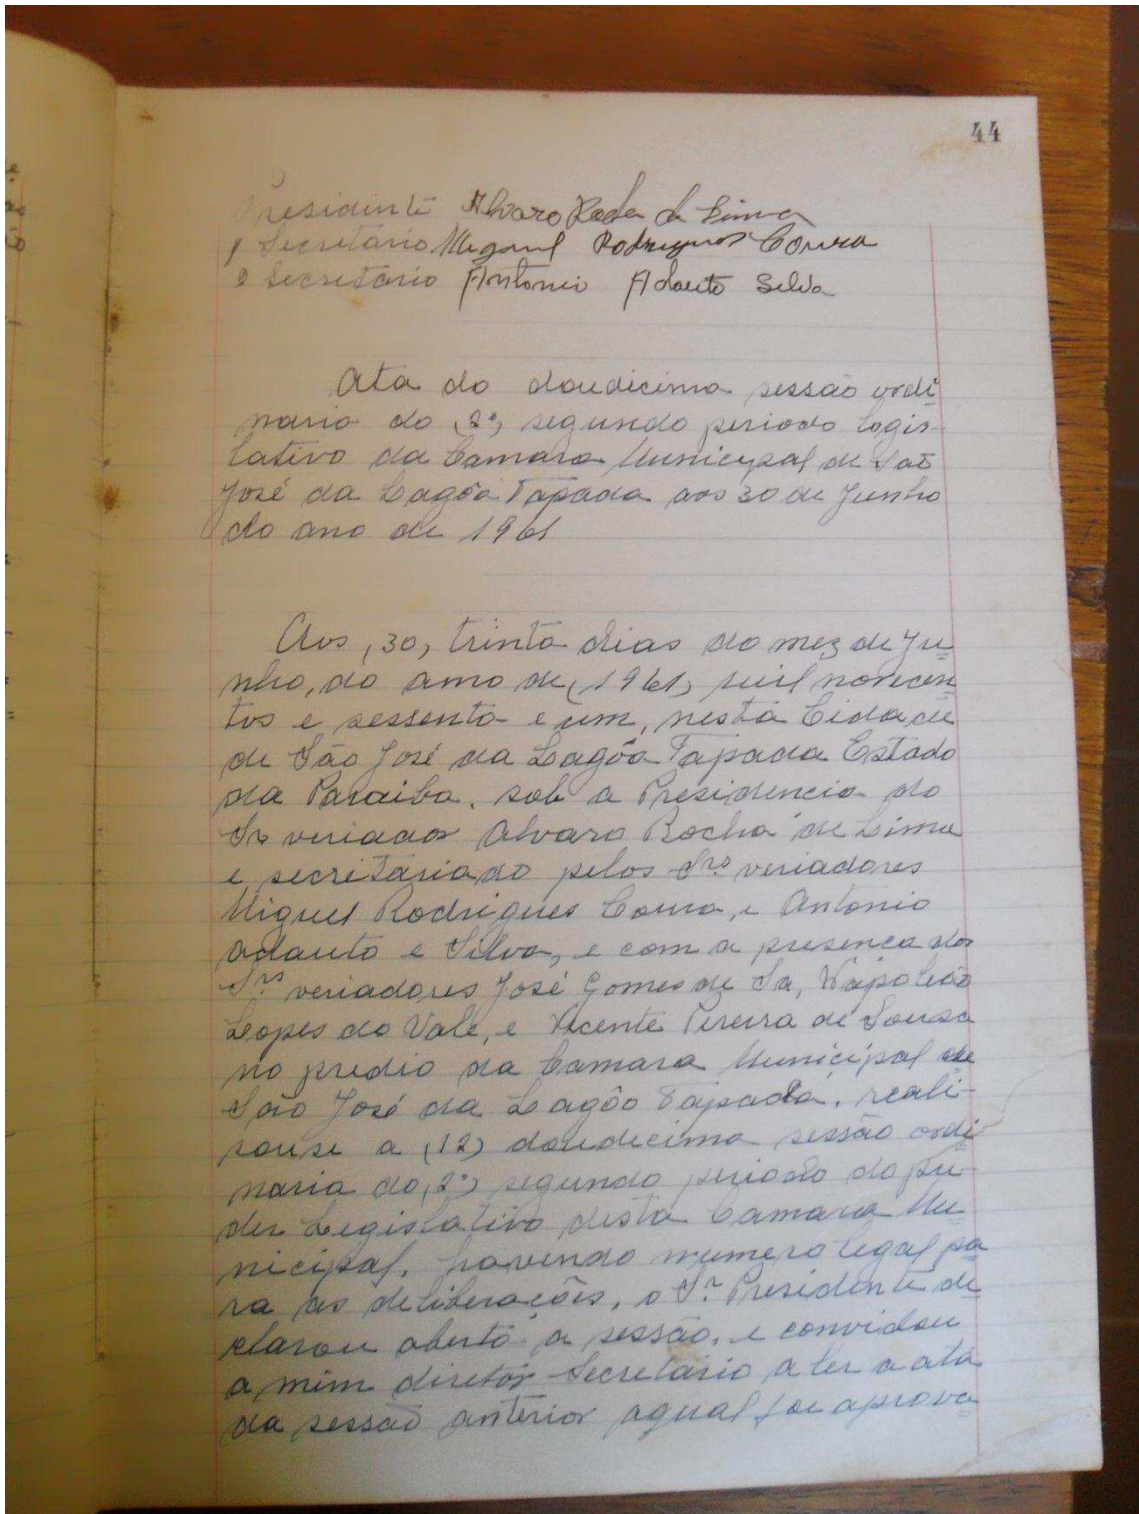 44
Presidente Alvaro Rocha de Lima
1 Secretario Miguel Rodrigues Coura
2 Secretario Antonio Adauto Silva
Ata do doudicima sessão ordi
naria do (2º) segundo periodo legis-
lativo da Camara Municipal de São
José da Lagôa Tapada aos 30 de Junho
do ano de 1961
Aos (30) trinta dias do mez de Ju
nho, do ano de (1961) mil novecen
tos e sessenta e um, nesta Cidade
de São José da Lagôa Tapada Estado
da Paraiba, sob a Presidencia do
Sr veriador Alvaro Rocha de Lima
e secretariado pelos Srs veriadores
Miguel Rodrigues Coura, e Antonio
Adauto e Silva, e com a presença dos
Srs veriadores José Gomes de Sa, Napoleão
Lopes do Vale, e Vicente Pereira de Sousa
no predio da Camara Municipal de
São José da Lagôa Tapada, reali-
souse a (12) doudecima sessão ordi
naria do (2º) segundo periodo do pu-
der Legislativo desta Camara Mu
nicipal, havendo numero legal pa
ra as deliberações, o Sr. Presidente de
clarou aberto a sessão, e convidou
a mim diretor Secretario a ler a ata
da sessão anterior aqual foi aprova